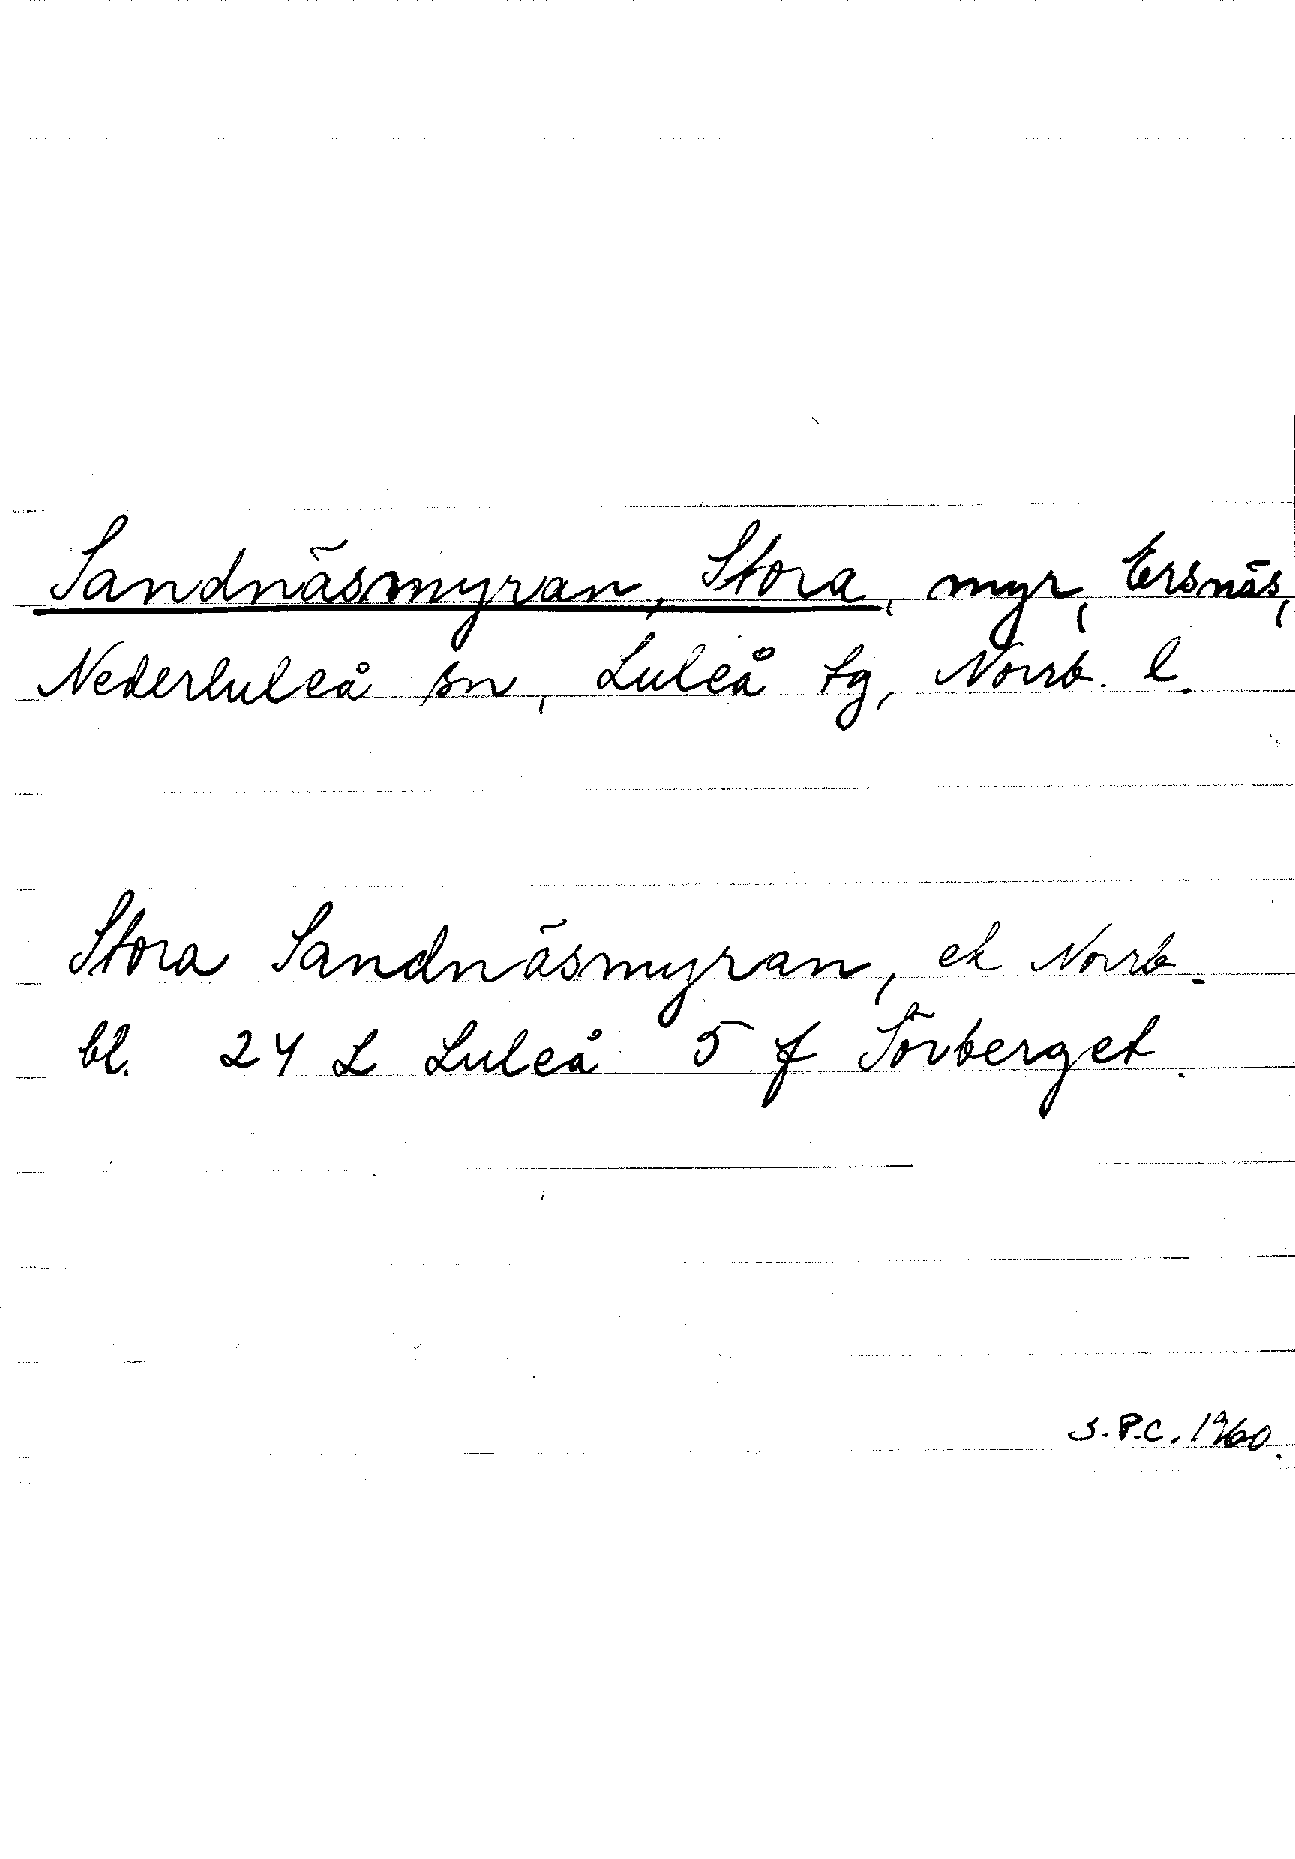 Sandnäsmyran, Stora, myr, Ersnäs,
Nederluleå sn, Luleå tg, Norrb. l.
Stora Sandnäsmyran, ek Norrb.
bl. 24 L Luleå 5 f Sörberget.
S.P.C. 1960.